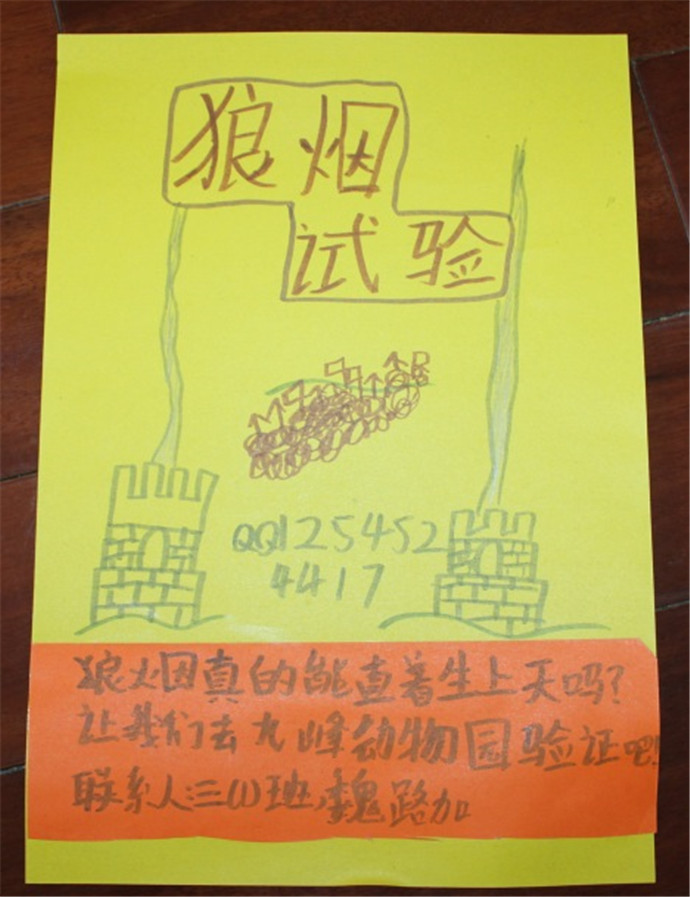 狼烟
试验
QQ125452
4417
狼烟真的能直着生上天吗?
让我们去九峰动物园验证吧!
联系人:三(1)班,魏路加